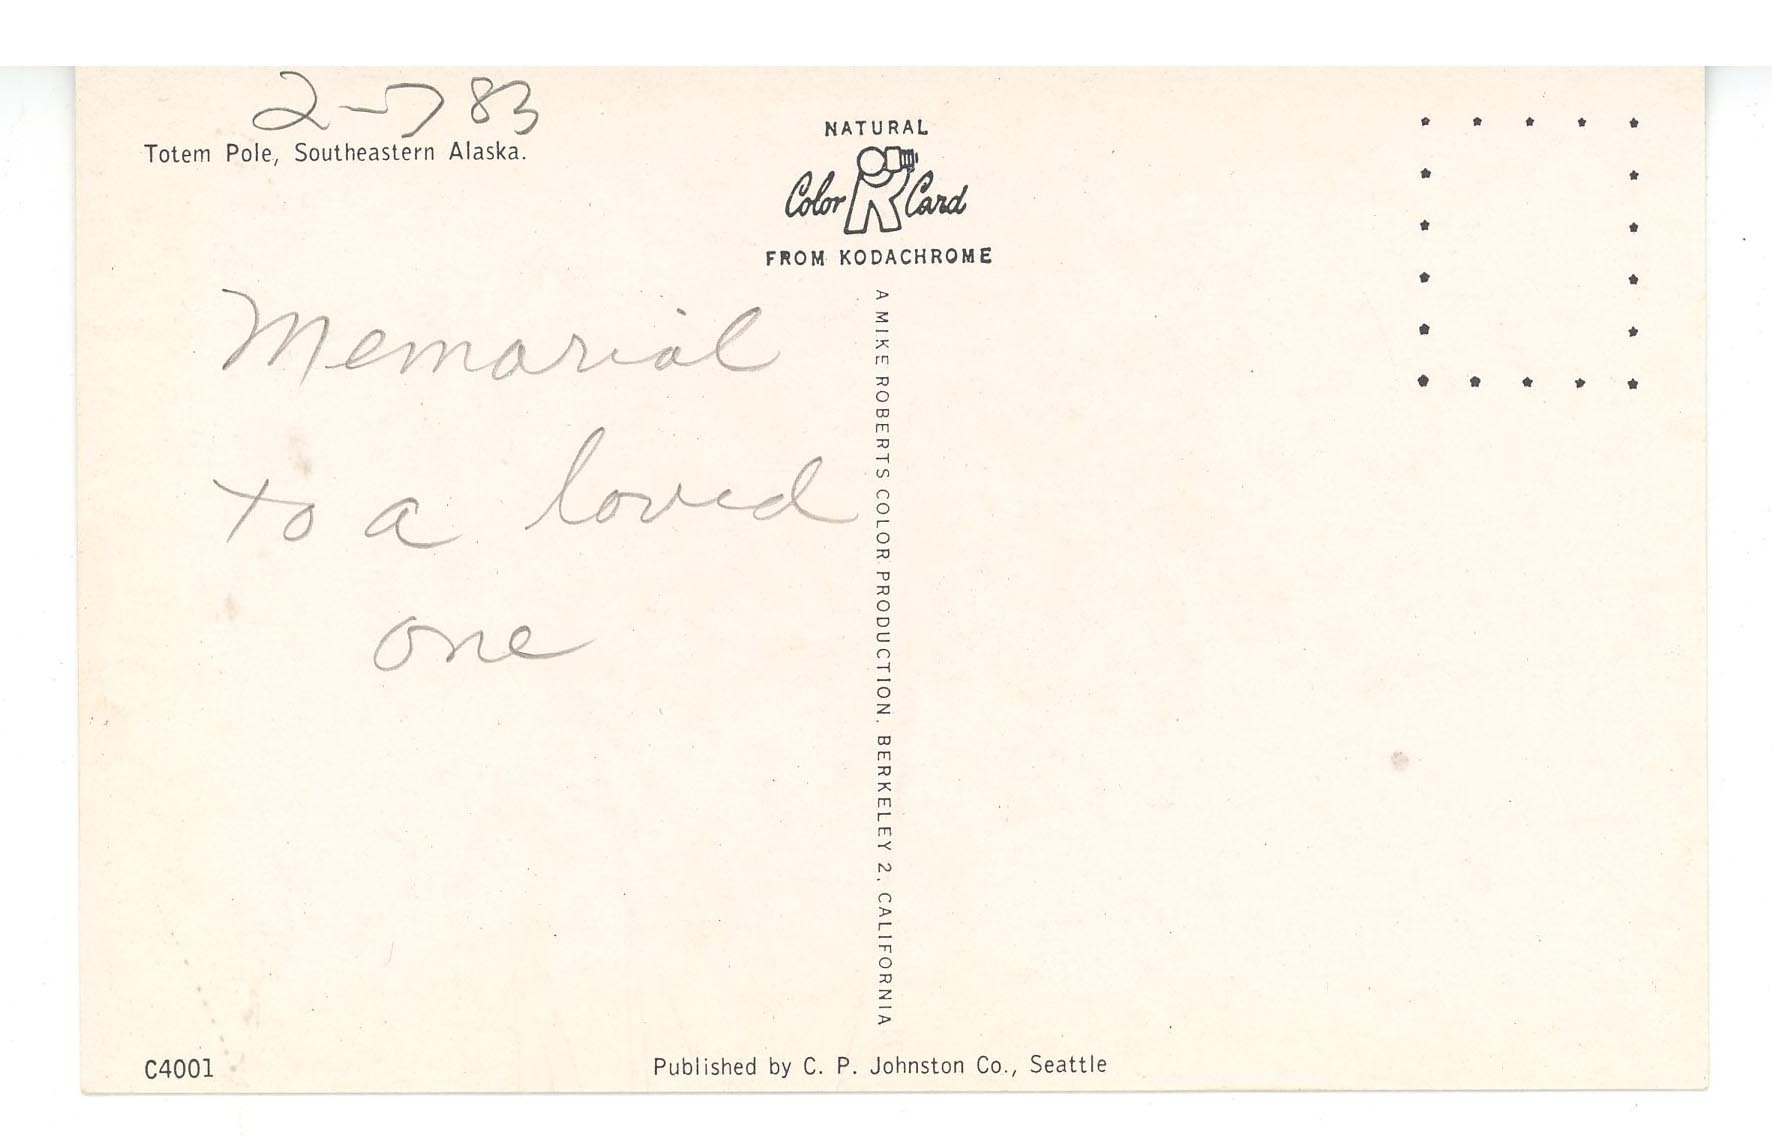 2-7 83
Totem Pole, Southeastern Alaska.
NATURAL
Color Card
FROM KODACHROME
Memorial
to a loved
one
A MIKE ROBERTS COLOR PRODUCTION, BERKELEY 2, CALIFORNIA
C4001
Published by C. P. Johnston Co., Seattle